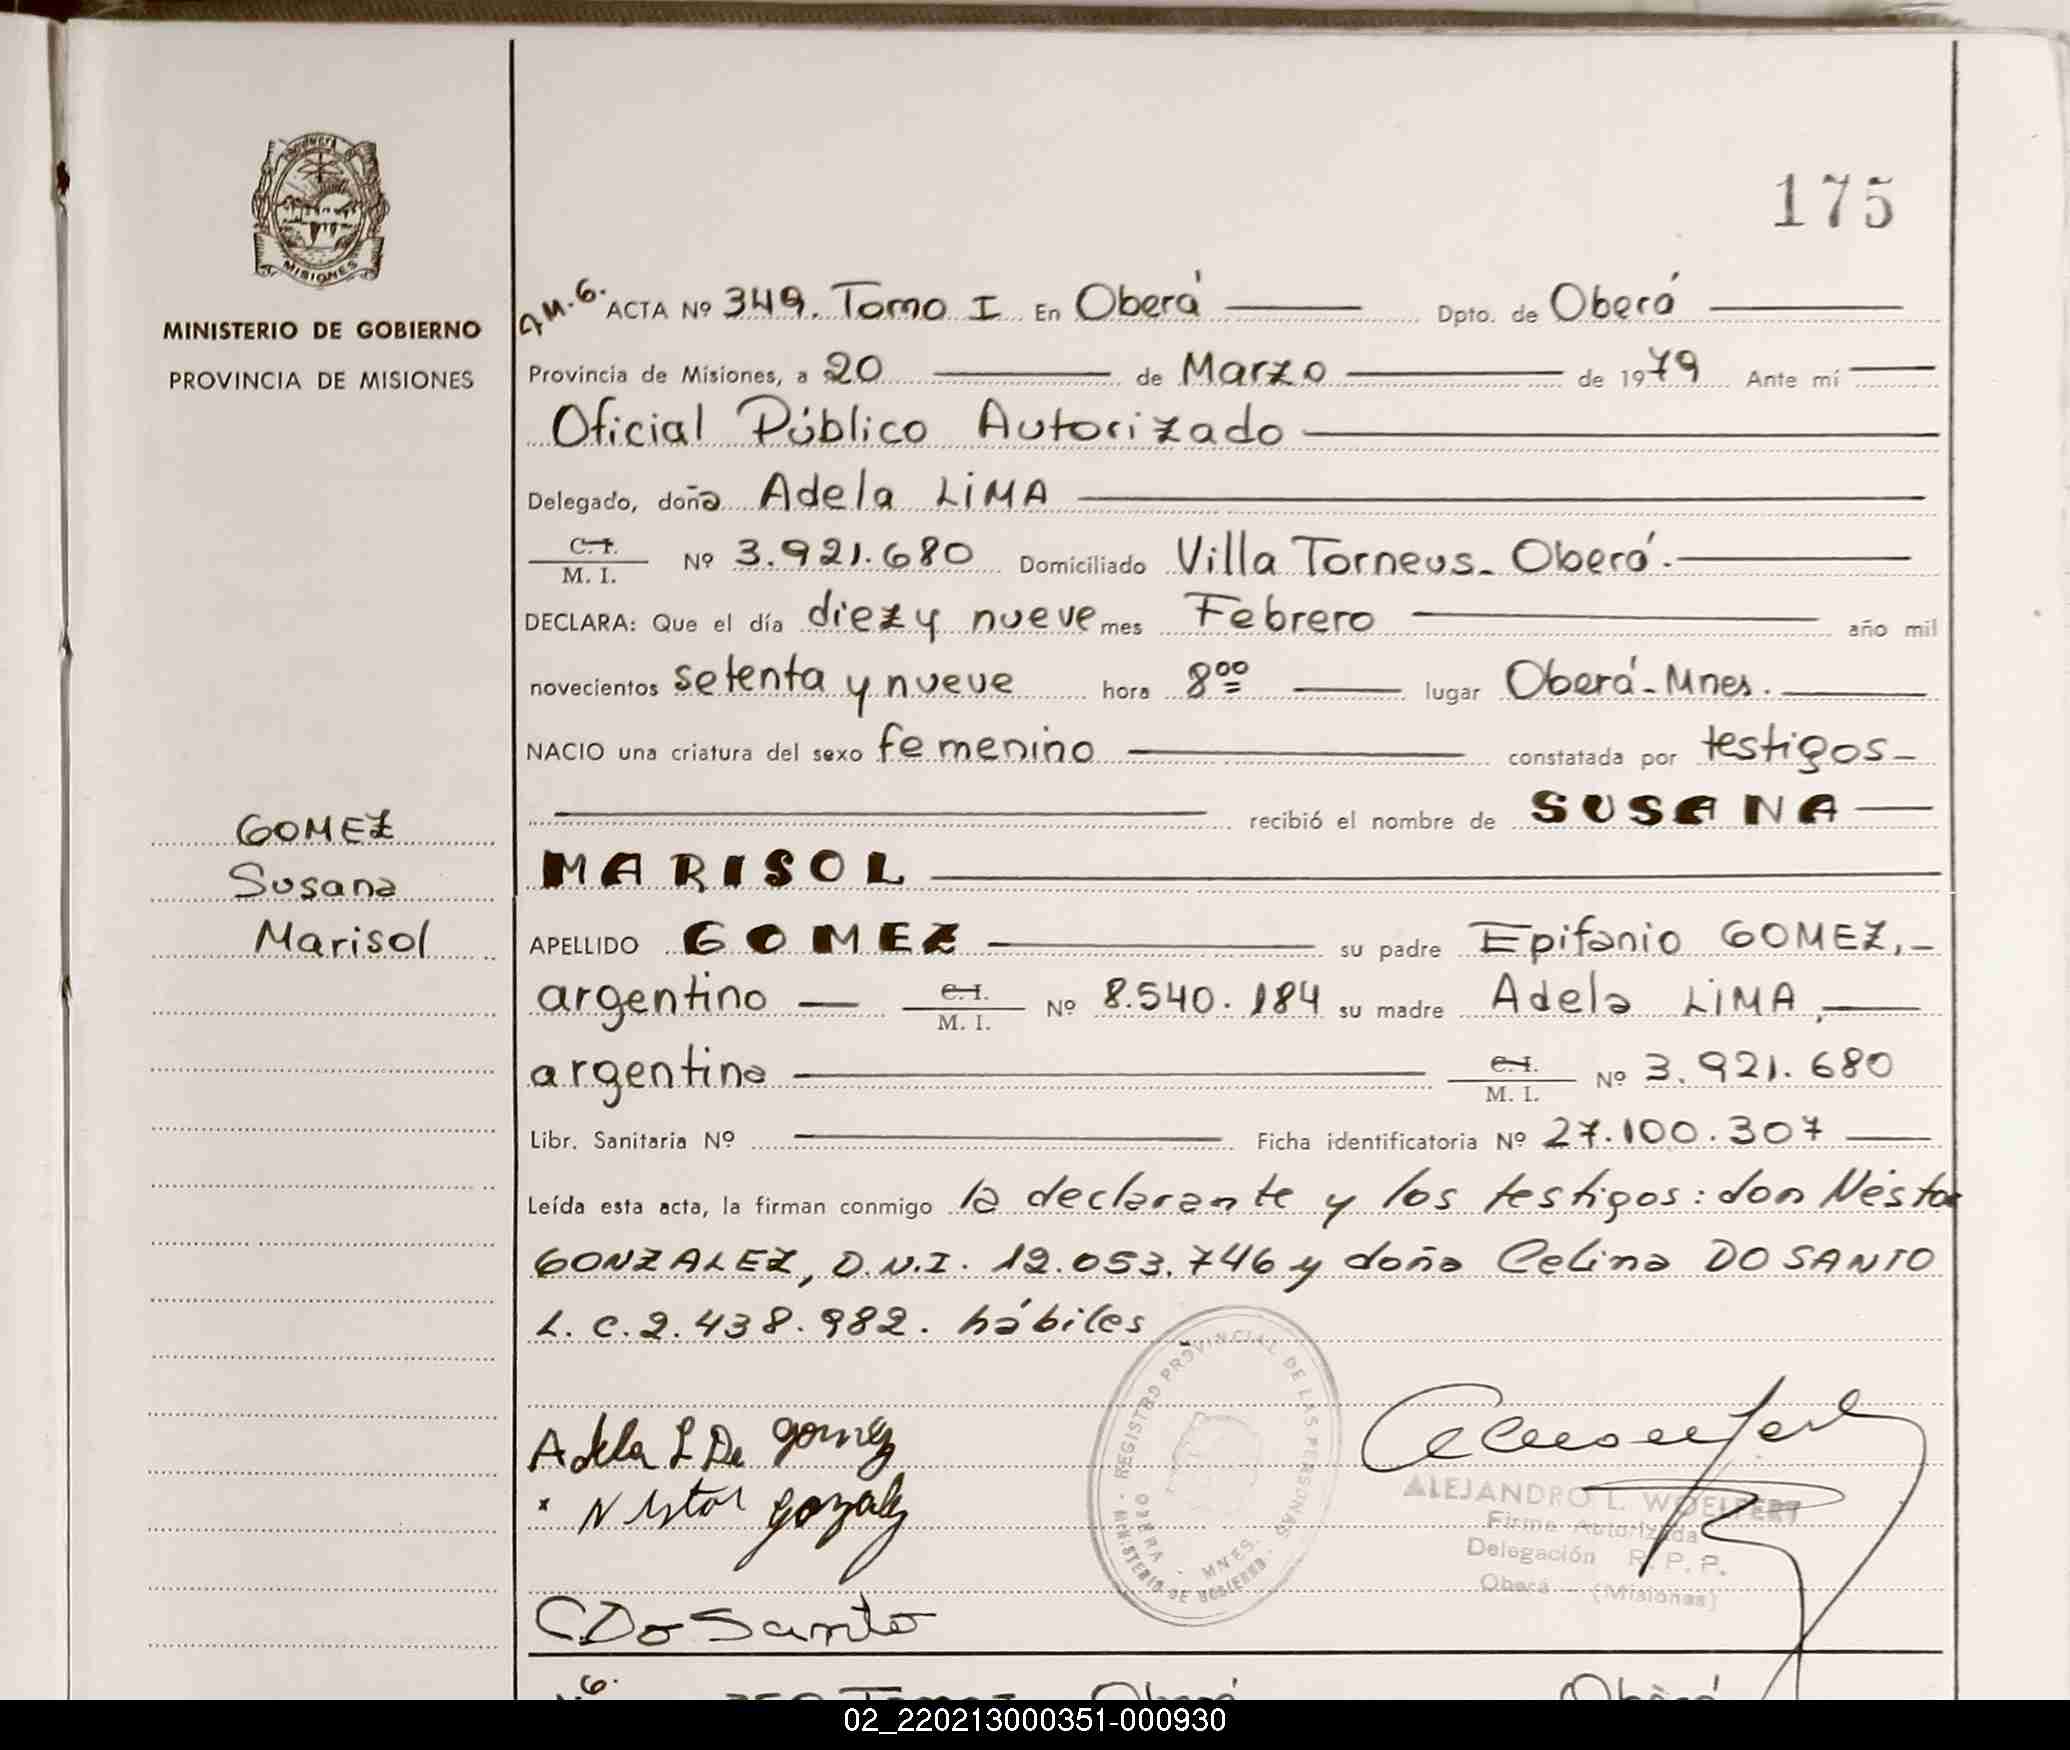 175
MISIONES
MINISTERIO DE GOBIERNO
PROVINCIA DE MISIONES
ACTA Nº 349. Tomo I En Oberá Dpto. de Oberá
Provincia de Misiones, a 20 de Marzo de 1979 Ante mí
Oficial Público Autorizado
Delegado, doña Adela LiMA
C. I. / M. I. Nº 3.921.680 Domiciliado Villa Torneus - Oberá.
DECLARA: Que el día diez y nueve mes Febrero año mil
novecientos setenta y nueve hora 8⁰⁰ lugar Oberá - Mnes.
NACIO una criatura del sexo femenino constatada por testigos -
recibió el nombre de SUSANA
MARISOL
GOMEZ
Susana
Marisol
APELLIDO GOMEZ su padre Epifanio GOMEZ, -
argentino C. I. / M. I. Nº 8.540.184 su madre Adela LiMA,
argentina C. I. / M. I. Nº 3.921.680
Libr. Sanitaria Nº Ficha identificatoria Nº 27.100.307
Leída esta acta, la firman conmigo la declarante y los testigos: don Néstor
GONZALEZ, D.N.I. 12.053.746 y doña Celina DO SANTO
L. C. 2.438.982. hábiles
Adela L De Gomez
Nestor Gozalez
C Do Santo
REGISTRO PROVINCIAL DE LAS PERSONAS
MINISTERIO DE GOBIERNO
OBERA - MNES.
ALEJANDRO L. WOELFERT
Firma Autorizada
Delegación R. P. P.
Oberá - (Misiones)
02_220213000351-000930